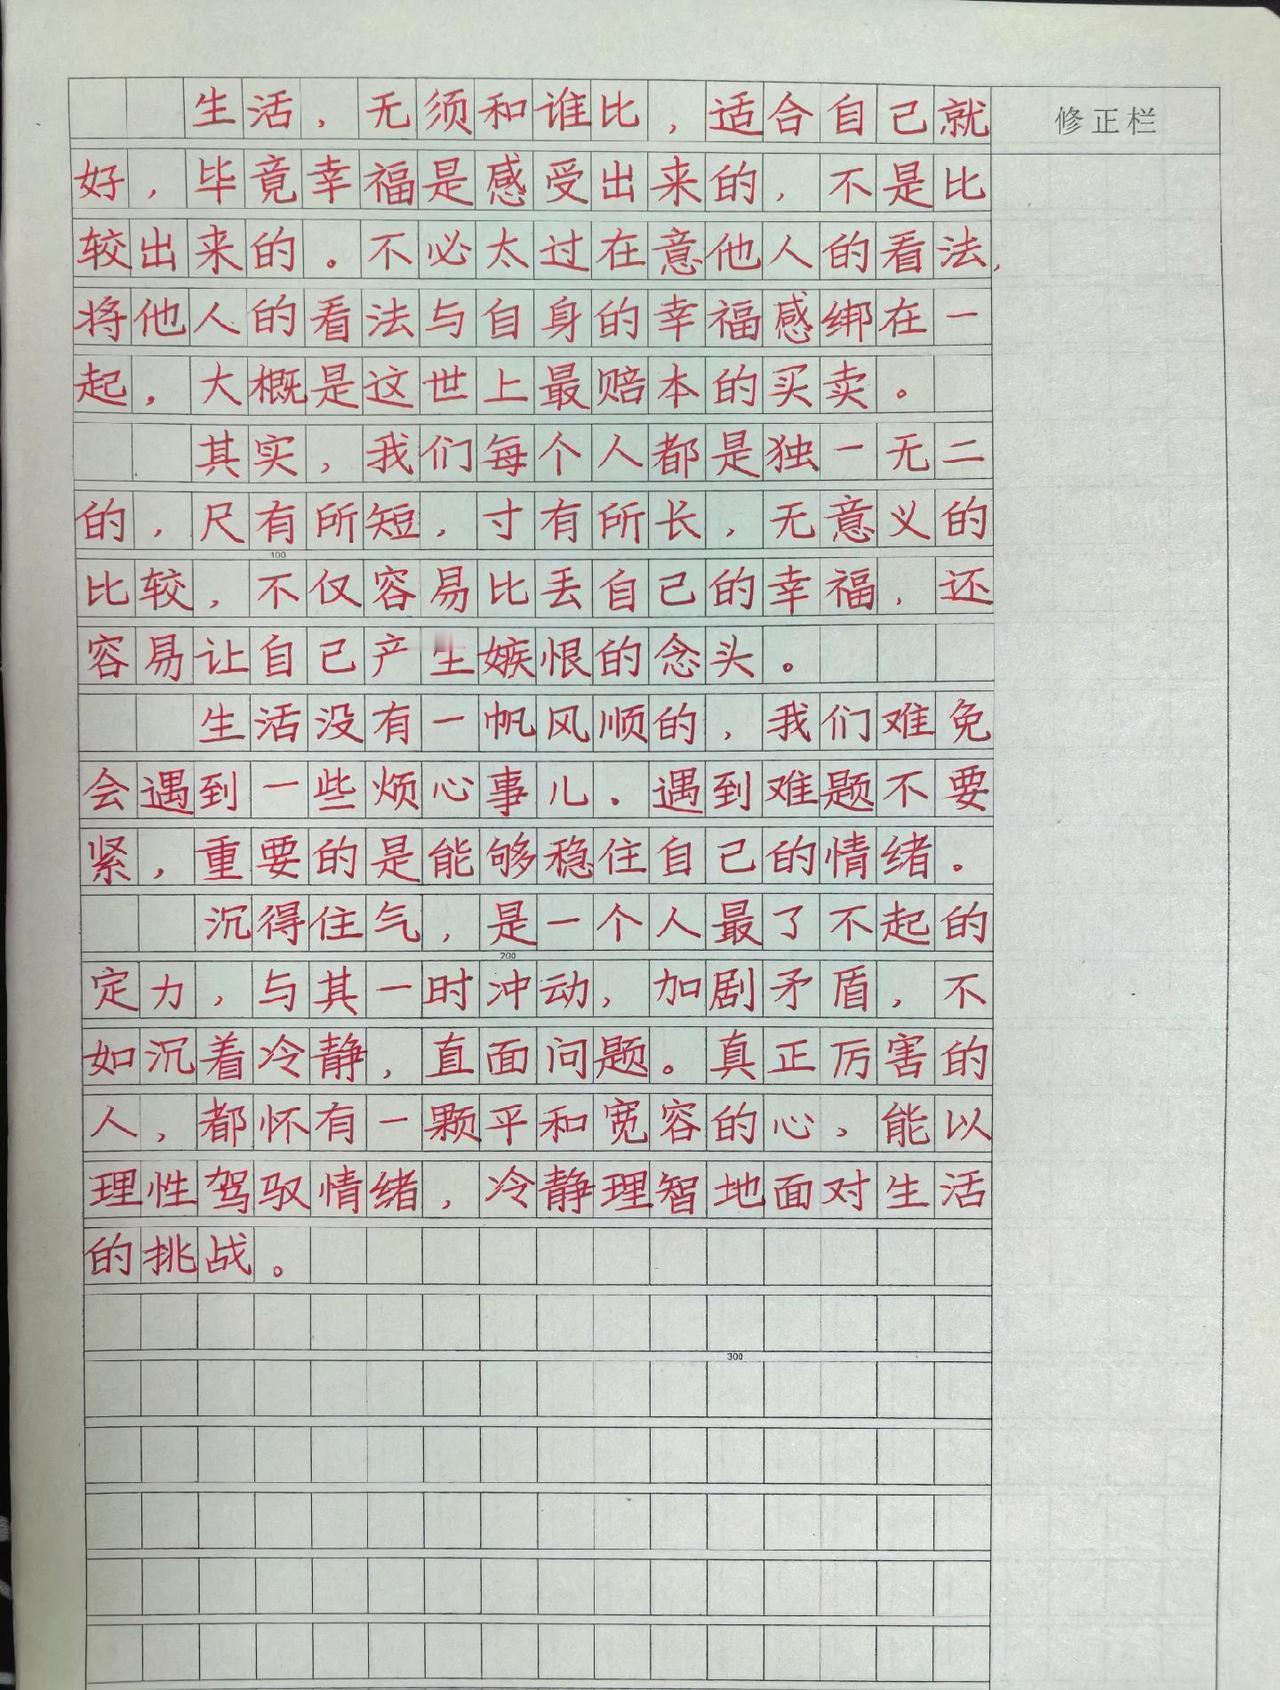 生活，无须和谁比，适合自己就
修正栏
好，毕竟幸福是感受出来的，不是比
较出来的。不必太过在意他人的看法，
将他人的看法与自身的幸福感绑在一
起，大概是这世上最赔本的买卖。
其实，我们每个人都是独一无二
的，尺有所短，寸有所长，无意义的
100
比较，不仅容易比丢自己的幸福，还
容易让自己产生嫉恨的念头。
生活没有一帆风顺的，我们难免
会遇到一些烦心事儿．遇到难题不要
紧，重要的是能够稳住自己的情绪。
沉得住气，是一个人最了不起的
200
定力，与其一时冲动，加剧矛盾，不
如沉着冷静，直面问题。真正厉害的
人，都怀有一颗平和宽容的心，能以
理性驾驭情绪，冷静理智地面对生活
的挑战。
300